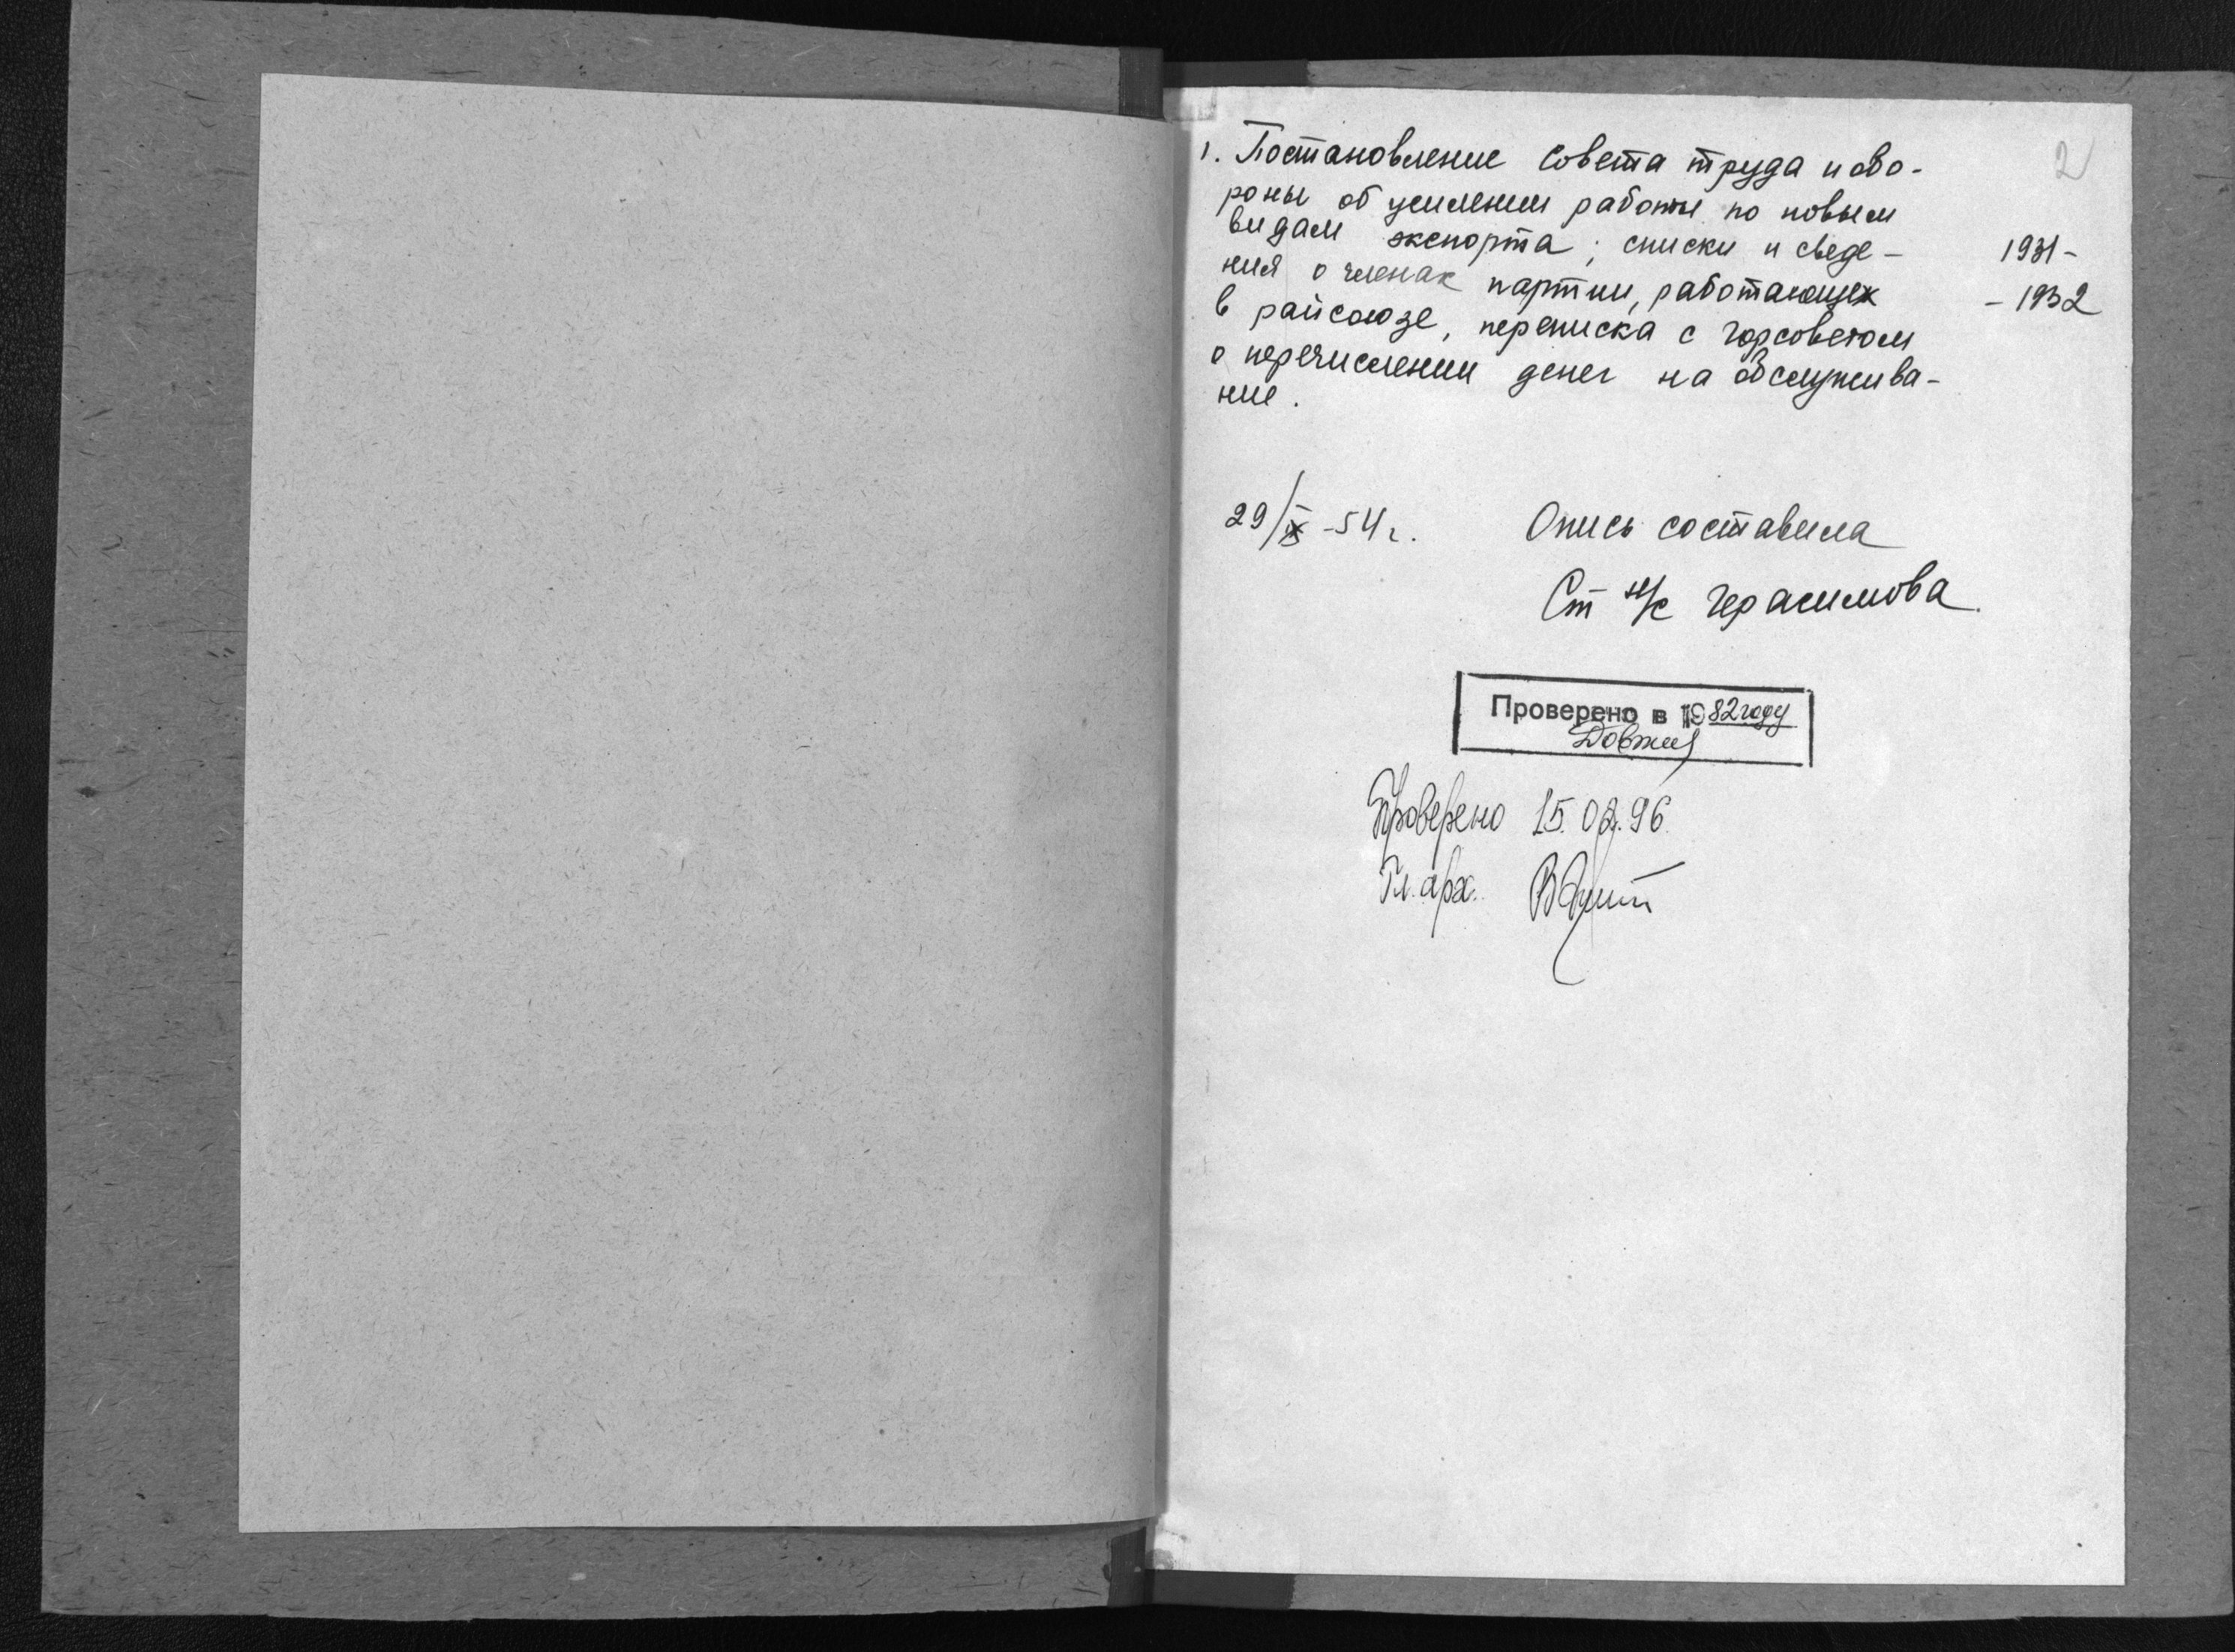 2
1. Постановление Совета труда и обо-
роны об усилении работы по новым
видам экспорта; списки и сведе- 1931-
ния о членах партии, работающих - 1932
в райсоюзе, переписка с горсоветом
о перечислении денег на обслужива-
ние.
29/ -54 г. Опись составила
Ст н/с Герасимова.
Проверено в 1982 году
Проверено 15.02.96.
Гл. арх.